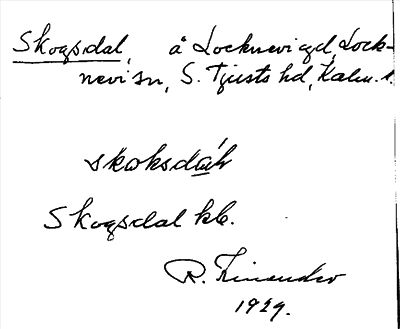 Skogsdal, å Locknevi gd, Lock-
nevi sn, S. Tjusts hd, Kalm. l.
skoksdáh
Skogsdal kb.
R.
1929.